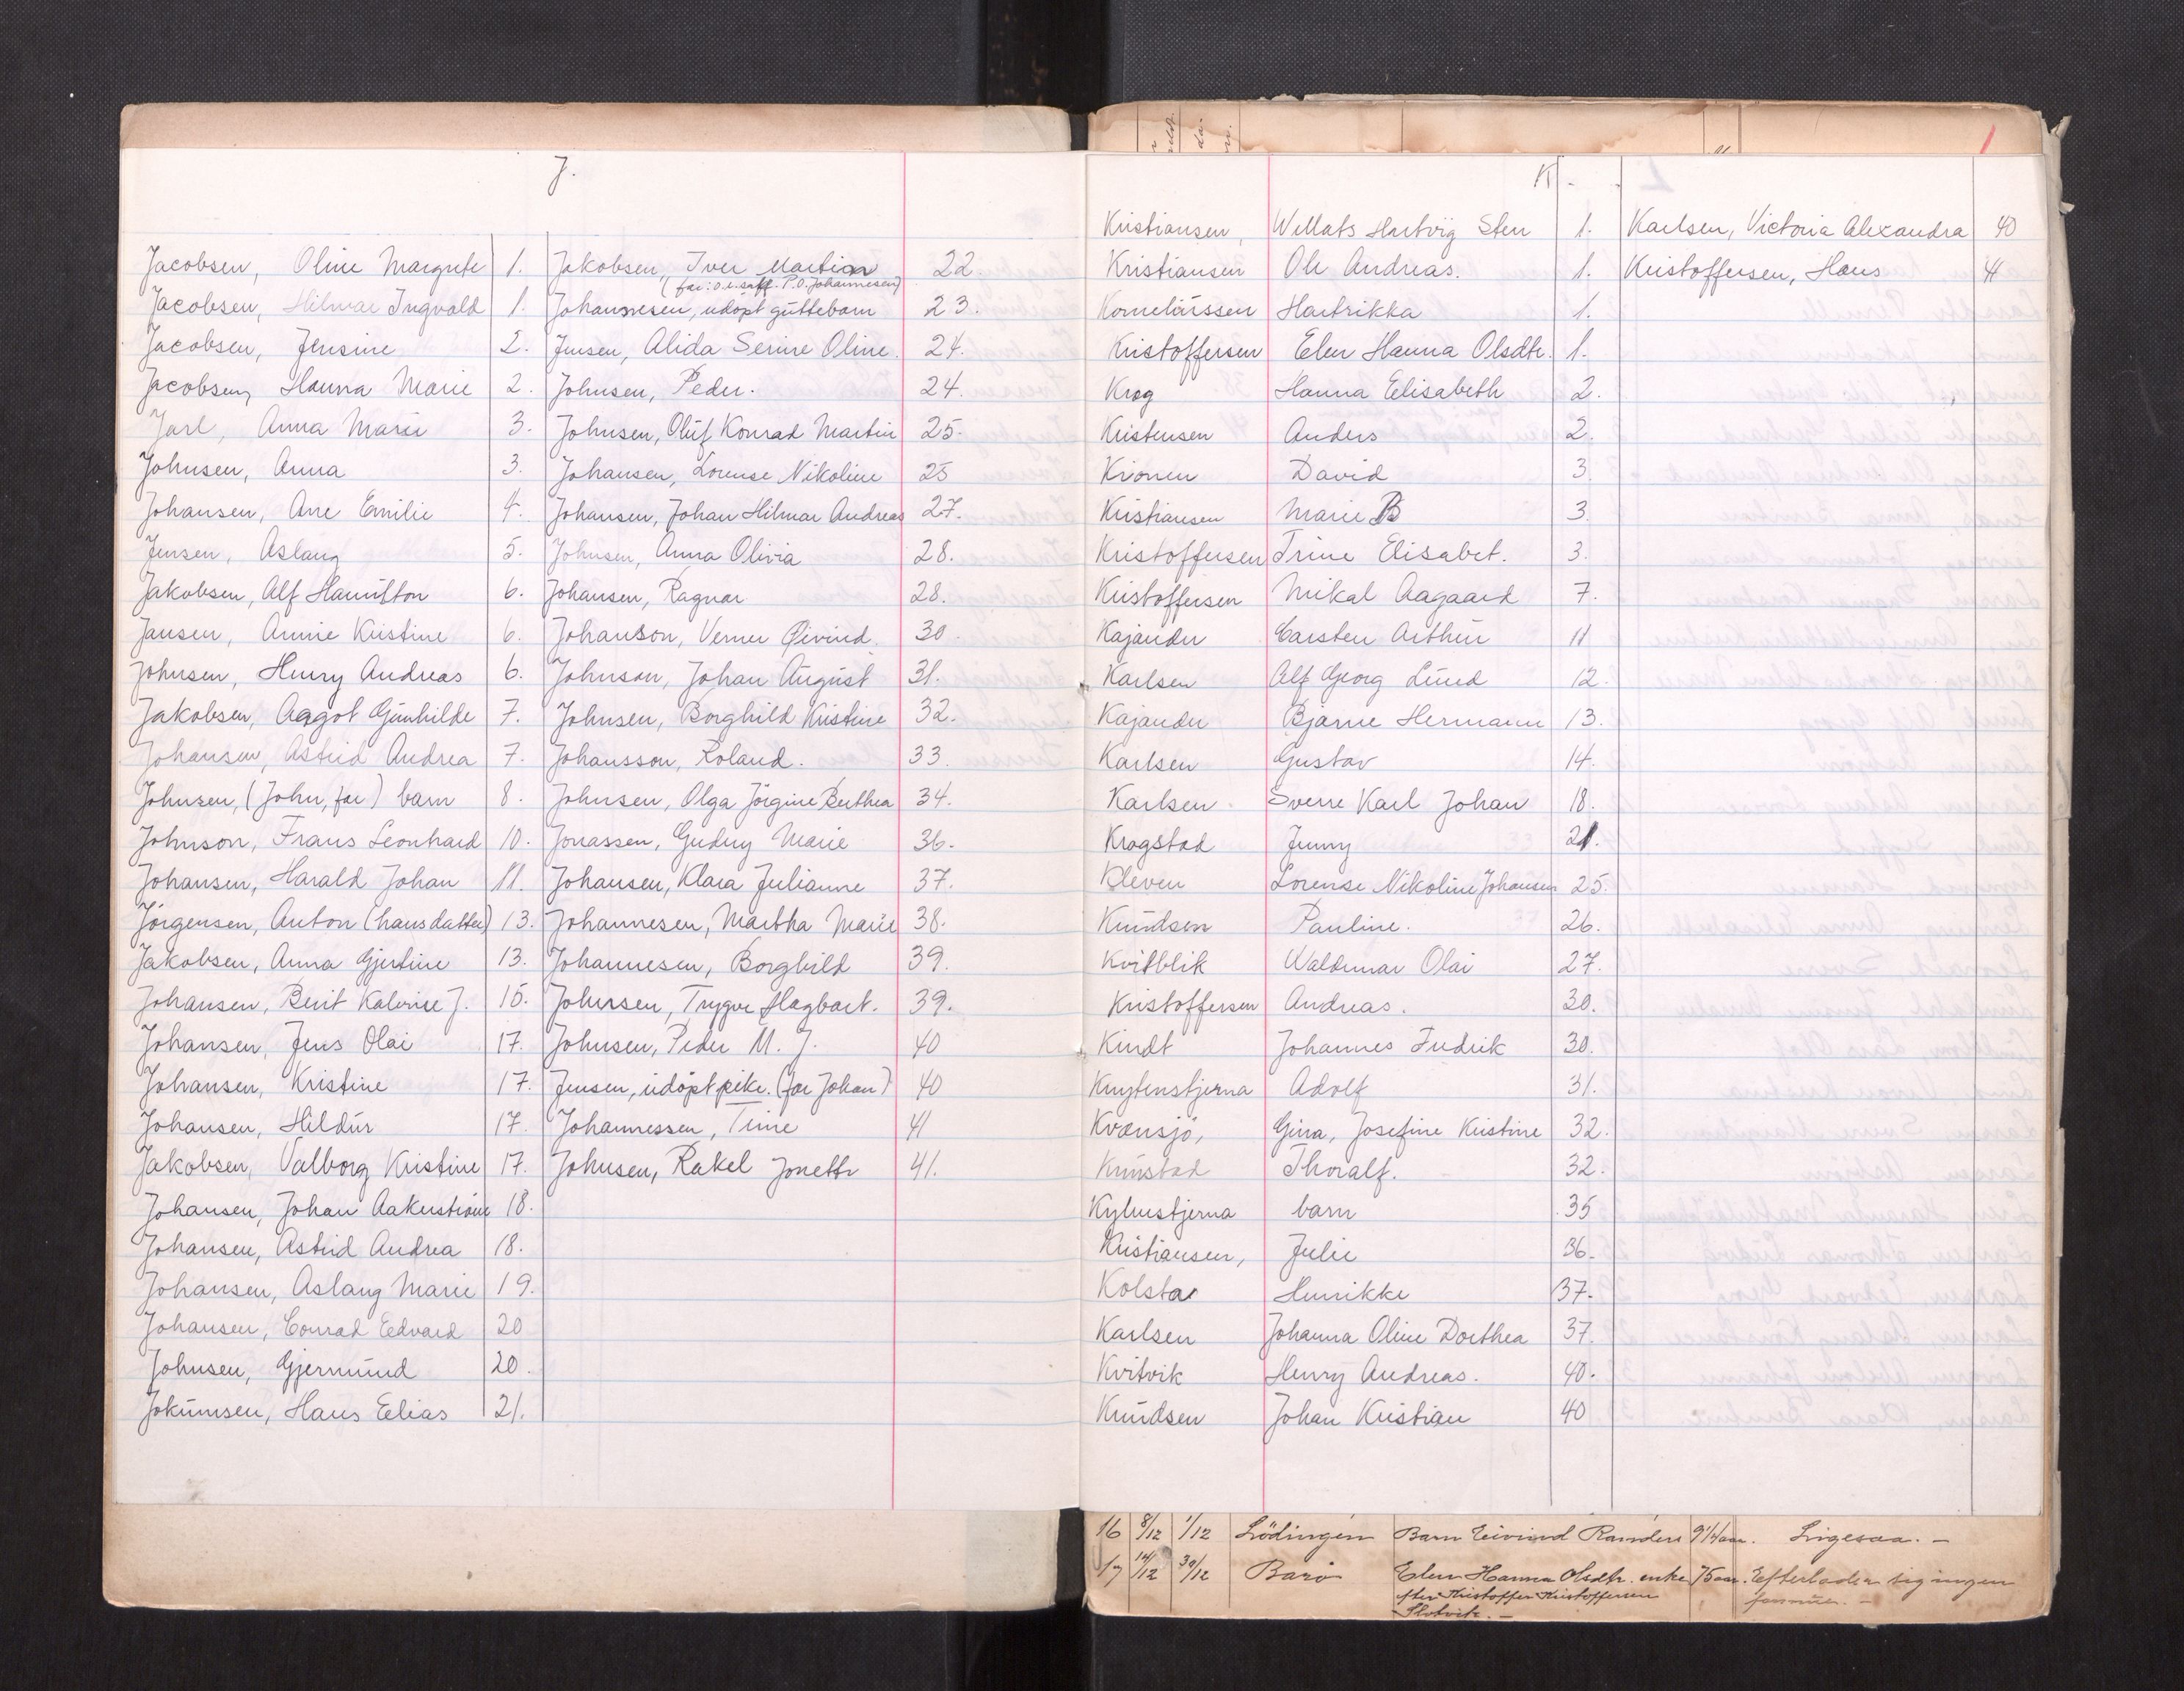 J.
Jacobsen, Oline Margrete 1.
Jacobsen, Hilmar Ingvald 1.
Jacobsen, Jensine 2.
Jacobsen, Hanna Marie 2.
Jarl, Anna Marie 3.
Johnsen, Anna 3.
Johansen, Ane Emilie 4.
Jensen, Aslaug 5.
Jakobsen, Alf Hamilton 6.
Jansen, Annie Kristine 6.
Johnsen, Henry Andreas 6.
Jakobsen, Aagot Gunhilde 7.
Johansen, Astrid Andrea 7.
Johnsen, (John, far) barn 8.
Johnson, Frans Leonhard 10.
Johansen, Harald Johan 11.
Jörgensen, Anton (hans datter) 13.
Jakobsen, Anna Gjertine 13.
Johansen, Berit Katrine J. 15.
Johansen, Jens Olai 17.
Johansen, Kristine 17.
Johansen, Hildur 17.
Jakobsen, Valborg Kristine 17.
Johansen, Johan 18.
Johansen, Astrid Andrea 18.
Johansen, Aslaug Marie 19.
Johansen, Conrad Edvard 20
Johnsen, Gjermund 20.
Jokumsen, Hans Elias 21.
Jakobsen, Iver Martin 22.
(far: P.O. Johannesen)
Johannesen, udöpt guttebarn 23.
Jensen, Alida Serine Oline. 24.
Johnsen, Peder. 24.
Johnsen, Oluf Konrad Martin 25.
Johansen, Lorense Nikoline 25
Johansen, Johan Hilmar Andreas 27.
Johnsen, Anna Olivia 28.
Johansen, Ragnar 28.
Johanson, Verner Øivind. 30.
Johnson, Johan August 31.
Johnsen, Borghild Kristine 32.
Johansson, Roland. 33.
Johnsen, Olga Jörgine Berthea 34.
Jonassen, Gudny Marie 36.
Johansen, Klara Julianne 37.
Johannesen, Martha Marie 38.
Johannesen, Borghild 39.
Johnsen, Trygve Hagbart. 39.
Johnsen, Peder M. J. 40
Jensen, udöpt pike. (far Johan) 40
Johannessen, Trine 41
Johnsen, Rakel Jonette 41.
K.
Kristiansen, Willats Hartvig Sten 1.
Kristiansen Ole Andreas. 1.
Korneliussen Hartrikka 1.
Kristoffersen Elen Hanna Olsdtr. 1.
Krog Hanna Elisabeth 2.
Kristensen Anders 2.
Kronen David 3.
Kristiansen Marie B 3.
Kristoffersen Trine Elisabet. 3.
Kristoffersen Mikal Aagaard 7.
Kajander Carsten Arthur 11
Karlsen Alf Georg Lund 12.
Kajander Bjarne Hermann 13.
Karlsen Gustav 14.
Karlsen Sverre Karl Johan 18.
Krogstad Jenny 21.
Kleven Lorense Nikoline Johansen 25.
Knudsen Pauline. 26.
Kvitblik Waldemar Olai 27.
Kristoffersen Andreas. 30.
Kindt Johannes Fredrik 30.
Knytenstjerna Adolf 31.
Kvansjö, Gina, Josefine Kristine 32.
Knustad Thoralf. 32.
barn 35
Kristiansen, Julie 36.
Kolsta Henrikke 37.
Karlsen Johanna Oline Dorthea 37.
Kvitvik Henry Andreas. 40.
Knudsen Johan Kristian 40
Karlsen, Victoria Alexandra 40
Kristoffersen, Hans 41
1
16 8/12 1/12 Lödingen Barn Eivind Randers 9 1/4 aar. Ligesaa. —
17 14/12 30/12 Barö Elen Hanna Olsdtr. enke 75 aar. Efterlader sig ingen
efter Kristoffer Kristoffersen formue. —
Slotvik. —